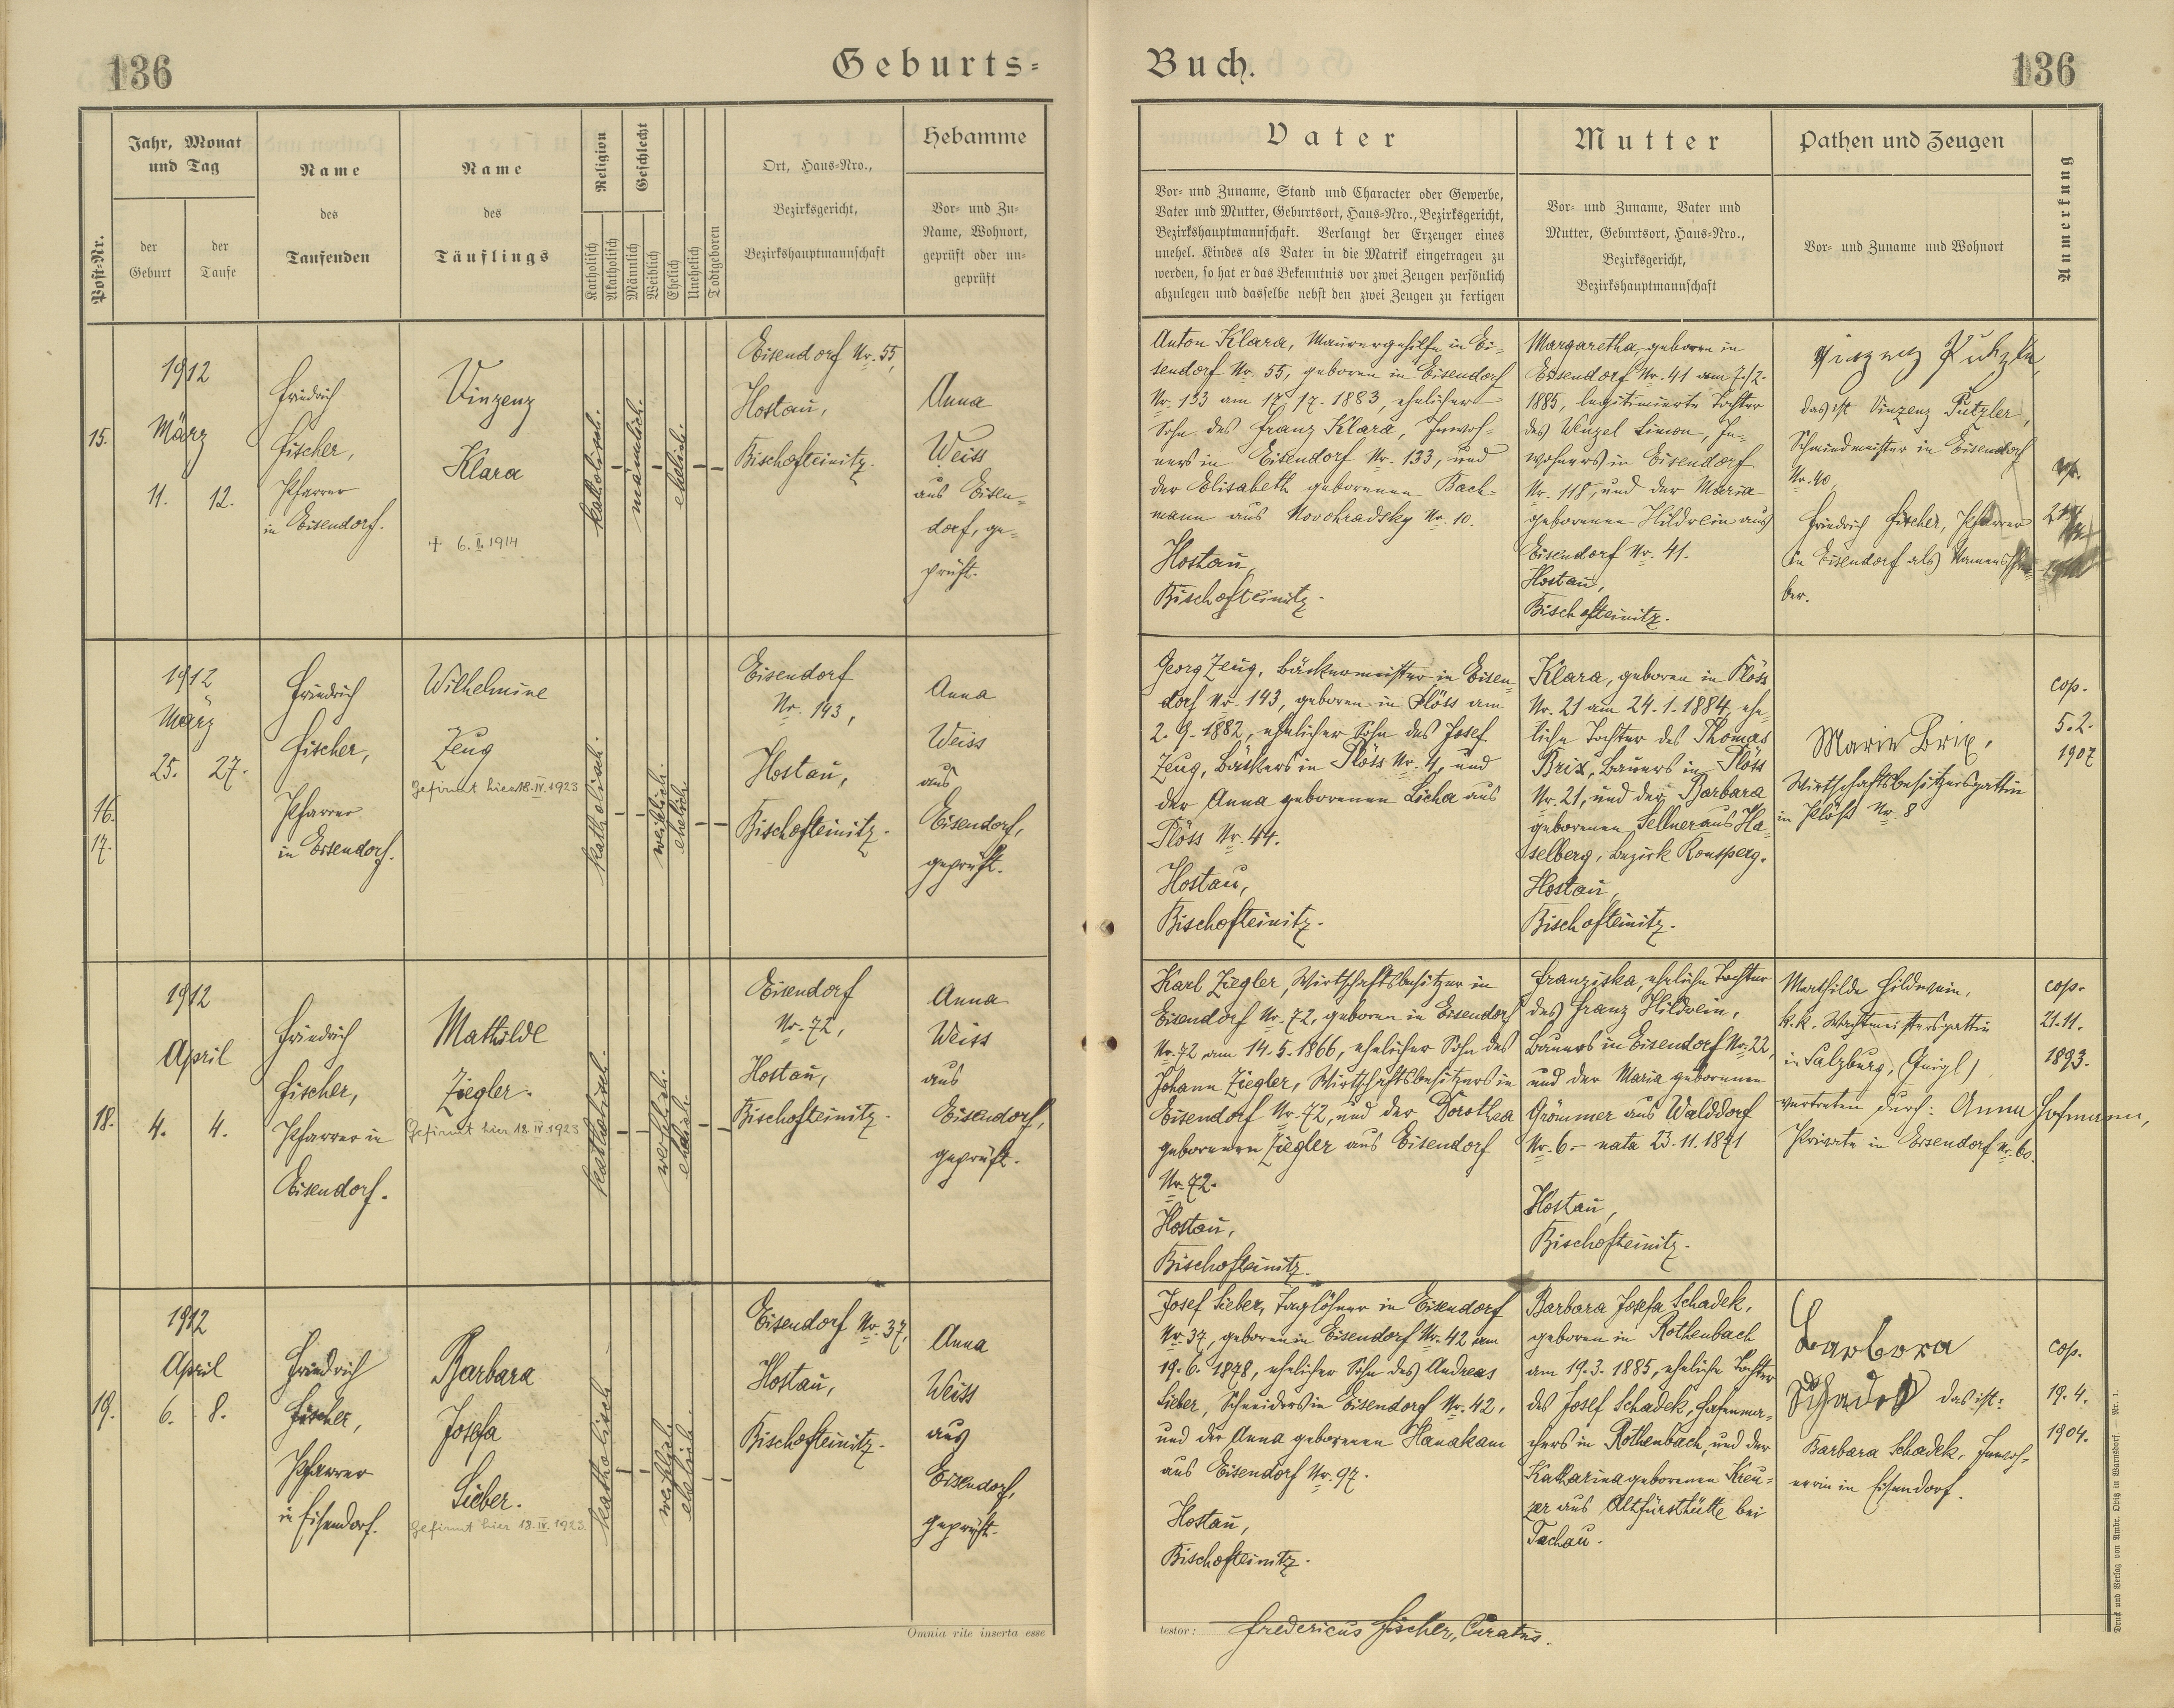 136
Geburts-
Jahr, Monat
und Tag
Post-Nr.
der
Geburt
der
Taufe
Name
des
Taufenden
Name
des
Täuflings
Religion
Katholisch
Akatholisch
Geschlecht
Männlich
Weiblich
Ehelich
Unehelich
Todtgeboren
Ort, Haus-Nro.,
Bezirksgericht,
Bezirkshauptmannschaft
Hebamme
Vor- und Zu-
Name, Wohnort,
geprüft oder un-
geprüft
15.
1912
März
11. 12.
Friedrich
Fischer,
Pfarrer
in Eisendorf.
Vinzenz
Klara
+ 6. II. 1914
katholisch.
männlich.
ehelich.
Eisendorf Nr. 55,
Hostau,
Bischofteinitz.
Anna
Weiss
aus Eisen-
dorf, ge-
prüft.
16.
17.
1912
März
25. 27.
Friedrich
Fischer,
Pfarrer
in Eisendorf.
Wilhelmine
Zeug
Gefirmt hier 18. IV. 1923
katholisch.
weiblich.
ehelich.
Eisendorf
Nr. 143,
Hostau,
Bischofteinitz.
Anna
Weiss
aus
Eisendorf,
geprüft.
18.
1912
April
4. 4.
Friedrich
Fischer,
Pfarrer in
Eisendorf.
Mathilde
Ziegler.
Gefirmt hier 18. IV. 1923
katholisch.
weiblich.
ehelich.
Eisendorf
Nr. 72,
Hostau,
Bischofteinitz.
Anna
Weiss
aus
Eisendorf,
geprüft.
19.
1912
April
6. 8.
Friedrich
Fischer,
Pfarrer
in Eisendorf.
Barbara
Josefa
Sieber.
Gefirmt hier 18. IV. 1923.
katholisch.
weiblich.
ehelich.
Eisendorf Nr. 37,
Hostau,
Bischofteinitz.
Anna
Weiss
aus
Eisendorf,
geprüft.
Omnia rite inserta esse
Buch.
136
Vater
Vor- und Zuname, Stand und Character oder Gewerbe,
Vater und Mutter, Geburtsort, Haus-Nro., Bezirksgericht,
Bezirkshauptmannschaft. Verlangt der Erzeuger eines
unehel. Kindes als Vater in die Matrik eingetragen zu
werden, so hat er das Bekenntnis vor zwei Zeugen persönlich
abzulegen und dasselbe nebst den zwei Zeugen zu fertigen
Mutter
Vor- und Zuname, Vater und
Mutter, Geburtsort, Haus-Nro.,
Bezirksgericht,
Bezirkshauptmannschaft
Pathen und Zeugen
Vor- und Zuname und Wohnort
Anmerkung
Anton Klara, Maurergehilfe in Ei-
sendorf Nr. 55, geboren in Eisendorf
Nr. 133 am 17. 1883, ehelicher
Sohn des Franz Klara, Inwoh-
ners in Eisendorf Nr. 133, und
der Elisabeth geborenen Bach-
mann aus Novohradsky Nr. 10.
Hostau,
Bischofteinitz.
Margaretha, geboren in
Eisendorf Nr. 41 am 7./2.
1885, legitimierte Tochter
des Wenzel Simon, In-
wohners in Eisendorf
Nr. 118, und der Maria
geborenen Hildwein aus
Eisendorf Nr. 41.
Hostau,
Bischofteinitz.
Vinzenz Putzler,
das ist Vinzenz Putzler,
Schmiedmeister in Eisendorf
Nr. 40,
Friedrich Fischer, Pfarrer
in Eisendorf als Namensschrei-
ber.
cop.
Georg Zeug, Bäckermeister in Eisen-
dorf Nr. 143, geboren in Plöss am
2. 9. 1882, ehelicher Sohn des Josef
Zeug, Bäckers in Plöss Nr. 4, und
der Anna geborenen Licha aus
Plöss Nr. 44.
Hostau,
Bischofteinitz.
Klara, geboren in Plöss
Nr. 21 am 24. 1. 1884, ehe-
liche Tochter des Thomas
Brix, Bauers in Plöss
Nr. 21, und der Barbara
geborenen Sellner aus Ha-
selberg, Bezirk Ronsperg.
Hostau,
Bischofteinitz.
Marie Brix,
Wirtschaftsbesitzersgattin
in Plöß Nr. 8
cop.
5. 2.
1907
Karl Ziegler, Wirtschaftsbesitzer in
Eisendorf Nr. 72, geboren in Eisendorf
Nr. 72 am 14. 5. 1866, ehelicher Sohn des
Johann Ziegler, Wirtschaftsbesitzers in
Eisendorf Nr. 72, und der Dorothea
geborenen Ziegler aus Eisendorf
Nr. 72.
Hostau,
Bischofteinitz.
Franziska, eheliche Tochter
des Franz Hildwein,
Bauers in Eisendorf Nr. 22,
und der Maria geborenen
Grömmer aus Walddorf
Nr. 6 – nata 23. 11. 1871
Hostau,
Bischofteinitz.
Mathilde Hildwein,
k. k. Wachtmeistersgattin
in Salzburg, (Gnigl)
vertreten durch: Anna Hofmann,
Private in Eisendorf Nr. 60.
cop.
21. 11.
1893.
Josef Sieber, Taglöhner in Eisendorf
Nr. 37, geboren in Eisendorf Nr. 42 am
19. 6. 1878, ehelicher Sohn des Andreas
Sieber, Schneiders in Eisendorf Nr. 42,
und der Anna geborenen Hanakam
aus Eisendorf Nr. 97.
Hostau,
Bischofteinitz.
Barbara Josefa Schadek,
geboren in Rothenbach
am 19. 3. 1885, eheliche Tochter
des Josef Schadek, Hafenma-
chers in Rothenbach, und der
Katharina geborenen Kreu-
zer aus Altfürsthütte bei
Tachau.
Barbara
Schadek das ist:
Barbara Schadek, Inwoh-
nerin in Eisendorf.
cop.
19. 4.
1904.
testor: Fredericus Fischer, Curatus.
Druck und Verlag von Ambr. Opitz in Warnsdorf. — Nr. 1.